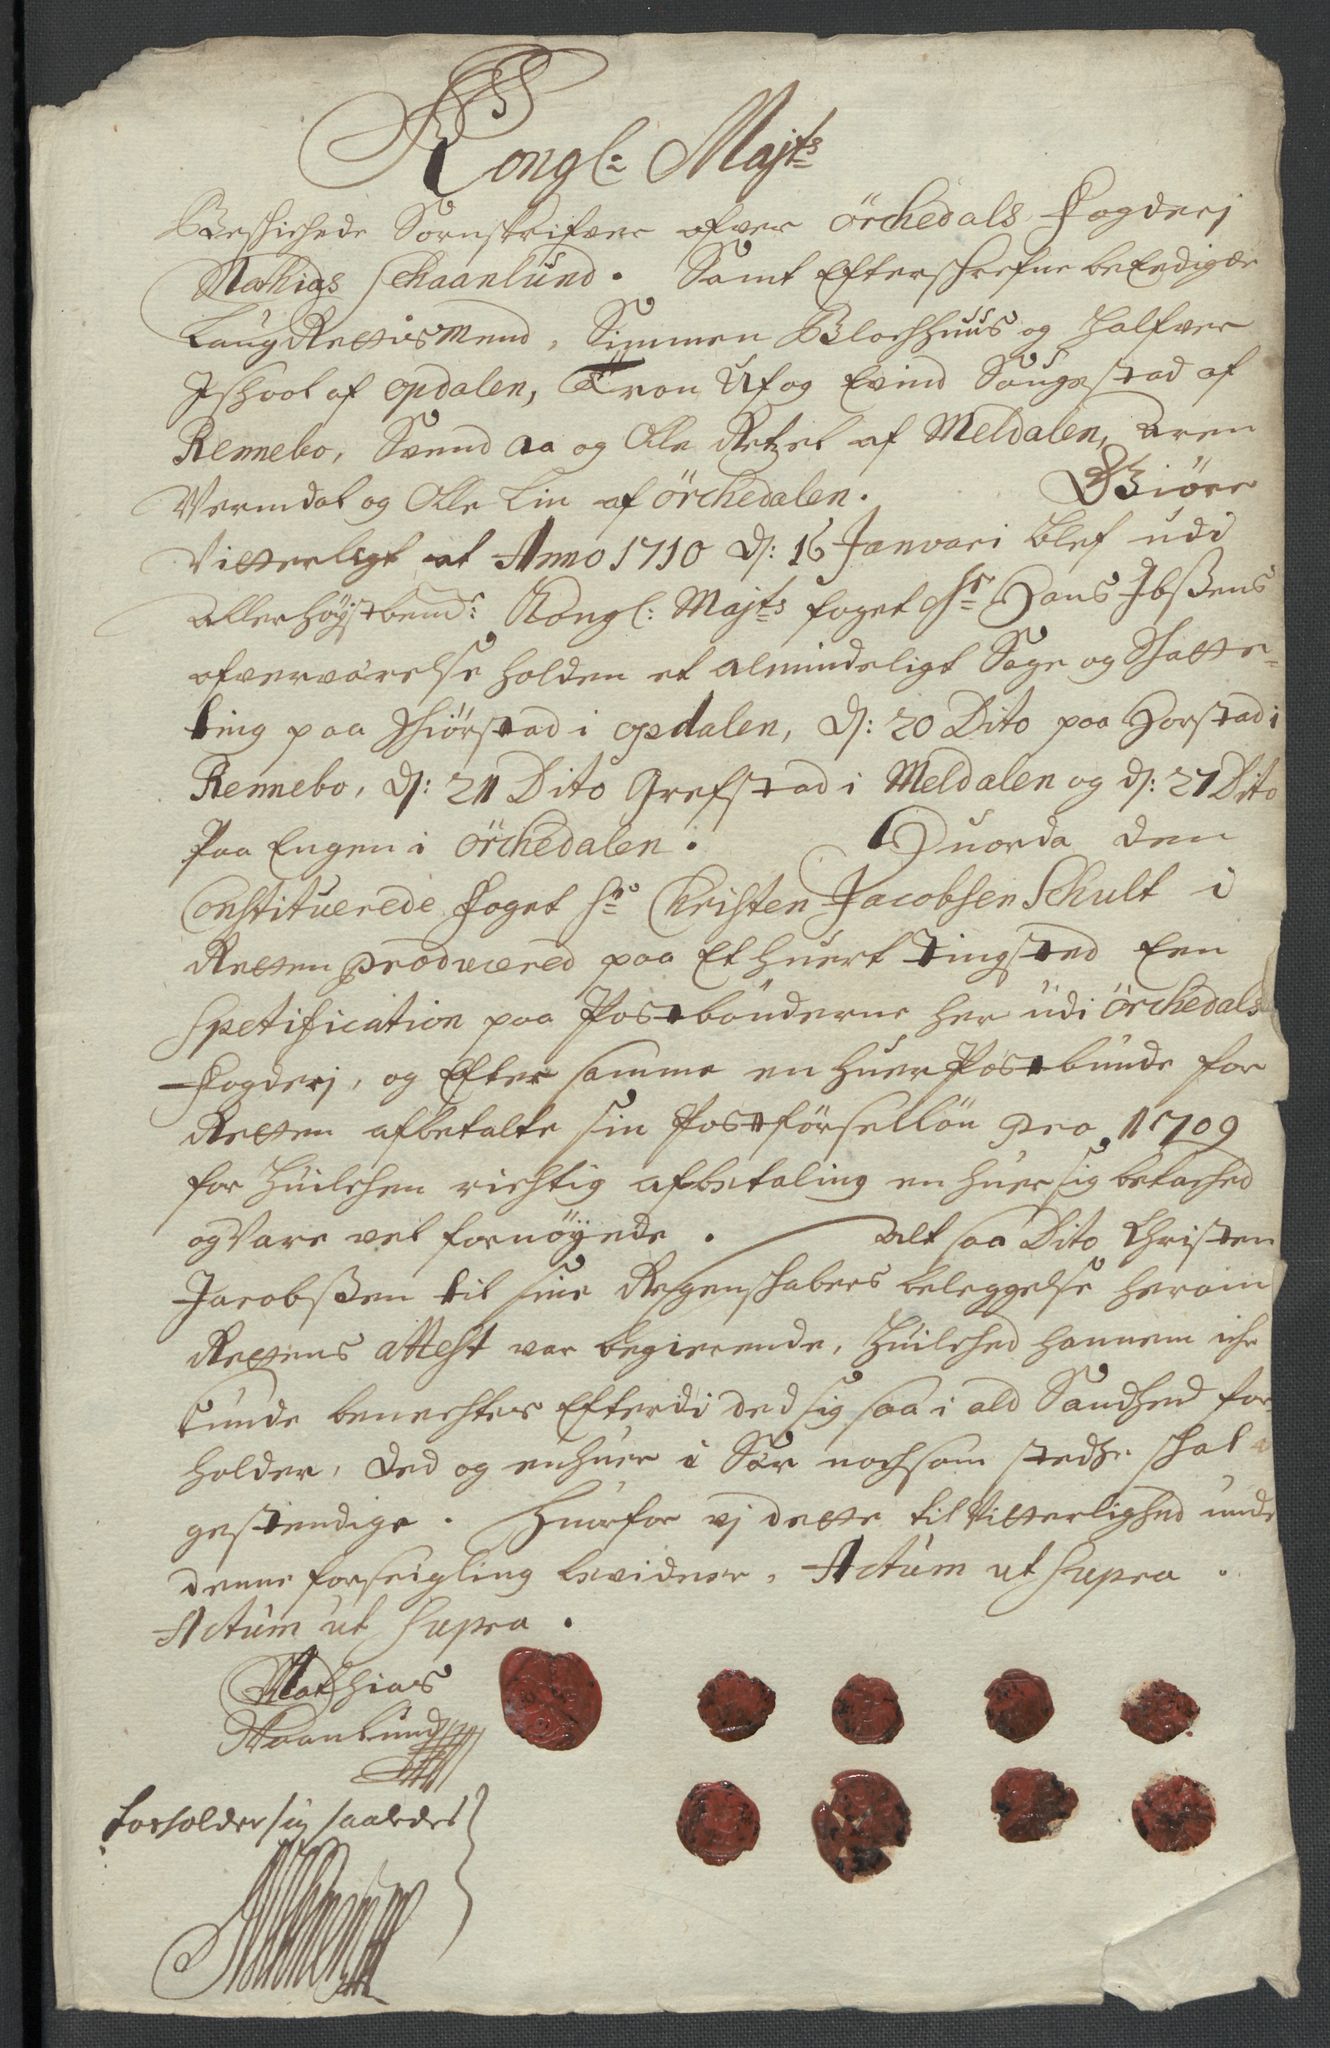 Kongl: Majts
Beschichede Sornskrifver ofver Örchedals Fogderj
Mathias Schaanlund. Samt Efterschrefne beEdigede
LaugRettismend, Simmen Blochhuus og Halfver
Ishool af Opdalen, Tron Uf og Evind Saugestad af
Rennebo, Svend Aa og Olle Retzel af Meldalen, Aren
Vermdal og Olle Lin af Örchedalen. Giöre
Vitterligt at Anno 1710 d: 16 Januari blef udi
allerhöystbemt: Kongl: Majts foget Sr Hans Ibssens
ofververelse holden et almindeligt Sage og Skatte-
ting paa Schiörstad i Opdalen, d: 20 Dito paa Horstad i
Rennebo, d: 21 Dito Grefstad i Meldalen og d: 27 Dito
paa Engen i Örchedalen. Huorda den
Constituerede Foget Sr Christen Jacobsen Schult i
Retten producered paa Et huert tingsted Een
Spetification paa Postbönderne her udi Örchedals
Fogderj, og Efter samme en huer Postbunde for
Retten afbetalte sin Postförsellön pro 1709
for huilchen richtig afbetaling en huer sig betached
og Vare vel fornöyede. Alt saa Dito Christen
Jacobssen til sine Regenschabers beleggelse herom
Rettens attest var begierende, Huilched hannem iche
kunde benechtes Efterdi ded sig saa i ald Sandhed for-
holder, ded og enhuer i Sær nochsom stedse schal
gestendige. Huorfor vj dette til Vitterlighed under
denne forseigling bevidner, Actum ut supra.
Actum ut Supra.
Mathias
Skaanlund
forholder sig saaledes